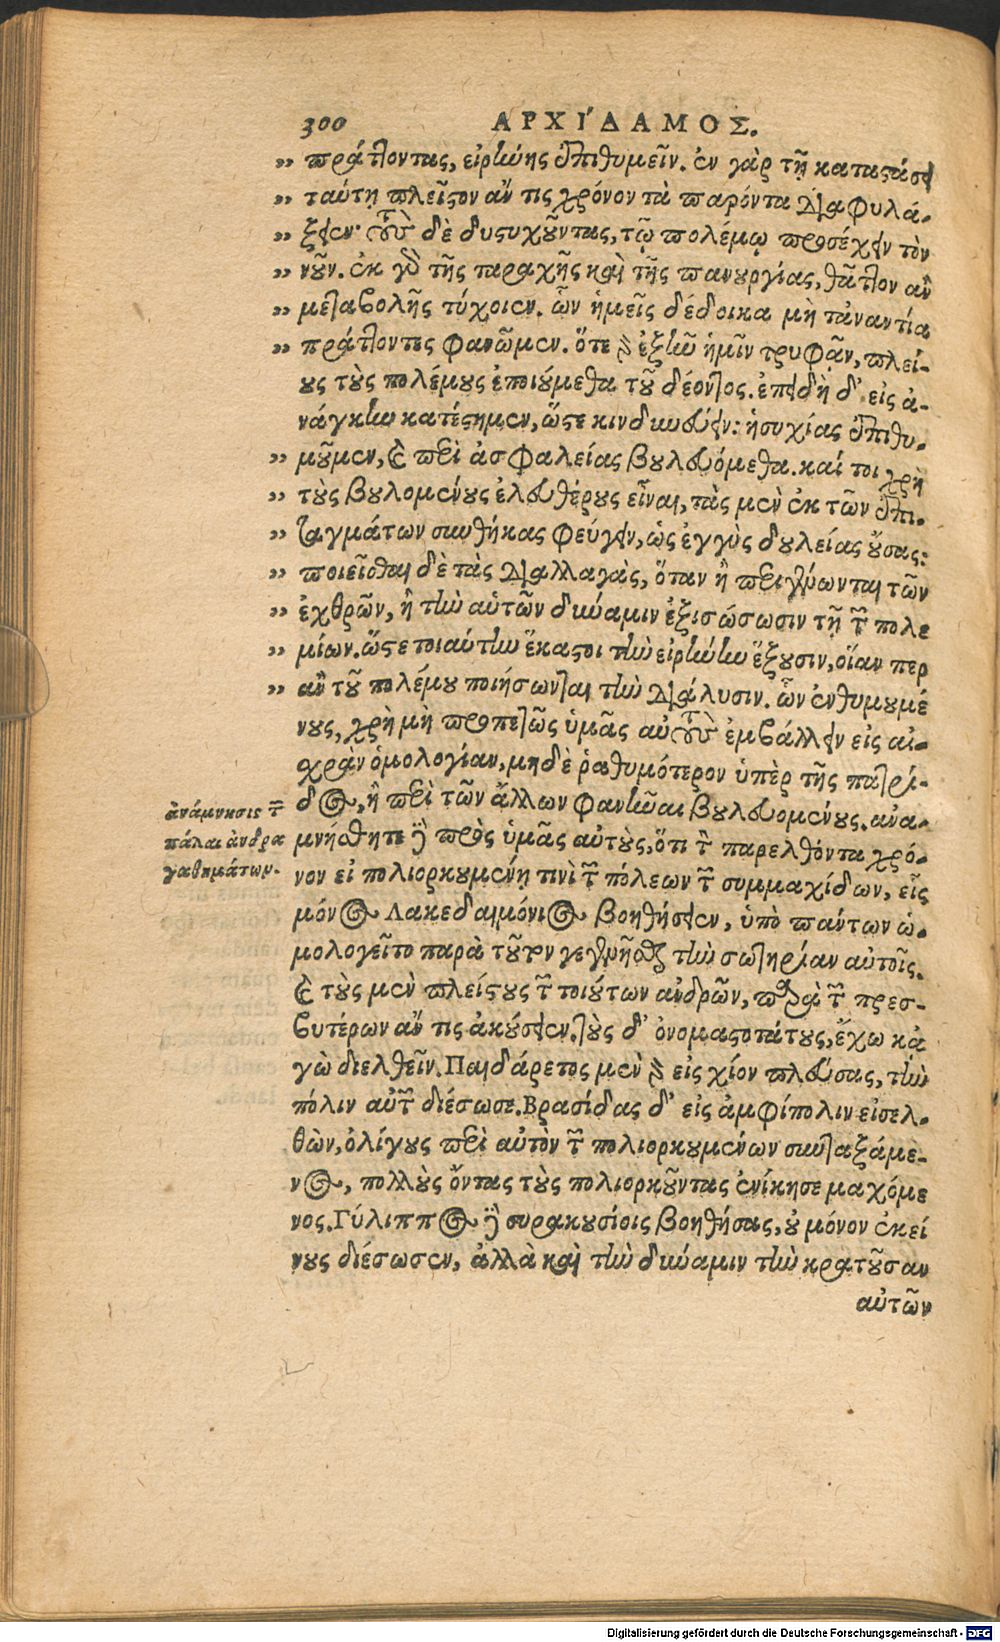 300 ΑΡΧΙΔΑΜΟΣ.
„ πράττοντας, εἰρήνης ἐπιθυμεῖν. ἐν γὰρ τῇ καταστάσει
„ ταύτῃ πλεῖστον ἄν τις χρόνον τὰ παρόντα διαφυλά-
„ ξειεν· τοὺς δὲ δυστυχοῦντας, τῷ πολέμῳ προσέχειν τὸν
„ νοῦν. ἐκ γὰρ τῆς ταραχῆς καὶ τῆς πανουργίας, θᾶττον ἂν
„ μεταβολῆς τύχοιεν. ὧν ἡμεῖς δέδοικα μὴ τἀναντία
„ πράττοντες φανῶμεν. ὅτε μὲν ἐξῆν ἡμῖν τρυφᾶν, πλεί-
ους τοὺς πολέμους ἐποιούμεθα τοῦ δέοντος. ἐπειδὴ δ' εἰς ἀ-
νάγκην κατέστημεν, ὥστε κινδυνεύειν: ἡσυχίας ἐπιθυ-
„ μοῦμεν, καὶ περὶ ἀσφαλείας βουλευόμεθα. καί τοι χρὴ
„ τοὺς βουλομένους ἐλευθέρους εἶναι, τὰς μὲν ἐκ τῶν ἐπι-
„ ταγμάτων συνθήκας φεύγειν, ὡς ἐγγὺς δουλείας οὔσας:
„ ποιεῖσθαι δὲ τὰς διαλλαγὰς, ὅταν ἢ περιγένωνται τῶν
„ ἐχθρῶν, ἢ τὴν αὑτῶν δύναμιν ἐξισώσωσιν τῇ τῶν πολε
„ μίων. ὥστε τοιαύτην ἕκαστοι τὴν εἰρήνην ἕξουσιν, οἵαν περ
„ ἂν τοῦ πολέμου ποιήσωνται τὴν διάλυσιν. ὧν ἐνθυμουμέ
νους, χρὴ μὴ προπετῶς ὑμᾶς αὐτοὺς ἐμβάλλειν εἰς αἰ-
σχρὰν ὁμολογίαν, μηδὲ ῥᾳθυμότερον ὑπὲρ τῆς πατρί-
δος, ἢ περὶ τῶν ἄλλων φανῆναι βουλευομένους. ἀνα-
μνήσθητε δὲ πρὸς ὑμᾶς αὐτοὺς, ὅτι τὸν παρελθόντα χρό-
νον εἰ πολιορκουμένῃ τινὶ τῶν πόλεων τῶν συμμαχίδων, εἷς
μόνος Λακεδαιμόνιος βοηθήσειεν, ὑπὸ πάντων ὡ-
μολογεῖτο παρὰ τοῦτον γενέσθαι τὴν σωτηρίαν αὐτοῖς.
καὶ τοὺς μὲν πλείστους τῶν τοιούτων ἀνδρῶν, παρὰ τῶν πρεσ-
βυτέρων ἄν τις ἀκούσειεν. τοὺς δ' ὀνομαστοτάτους, ἔχω κἀ
γὼ διελθεῖν. Παιδάρετος μὲν γὰρ εἰς χίον πλεύσας, τὴν
πόλιν αὐτῶν διέσωσε. Βρασίδας δ' εἰς ἀμφίπολιν εἰσελ-
θὼν, ὀλίγους περὶ αὐτὸν τῶν πολιορκουμένων συνταξάμε-
νος, πολλοὺς ὄντας τοὺς πολιορκοῦντας ἐνίκησε μαχόμε
νος. Γύλιππος δὲ συρακουσίοις βοηθήσας, οὐ μόνον ἐκεί
νους διέσωσεν, ἀλλὰ καὶ τὴν δύναμιν τὴν κρατοῦσαν
αὐτῶν
ἀνάμνησις τῶν
πάλαι ἀνδρα
γαθημάτων.
Digitalisierung gefördert durch die Deutsche Forschungsgemeinschaft - DFG